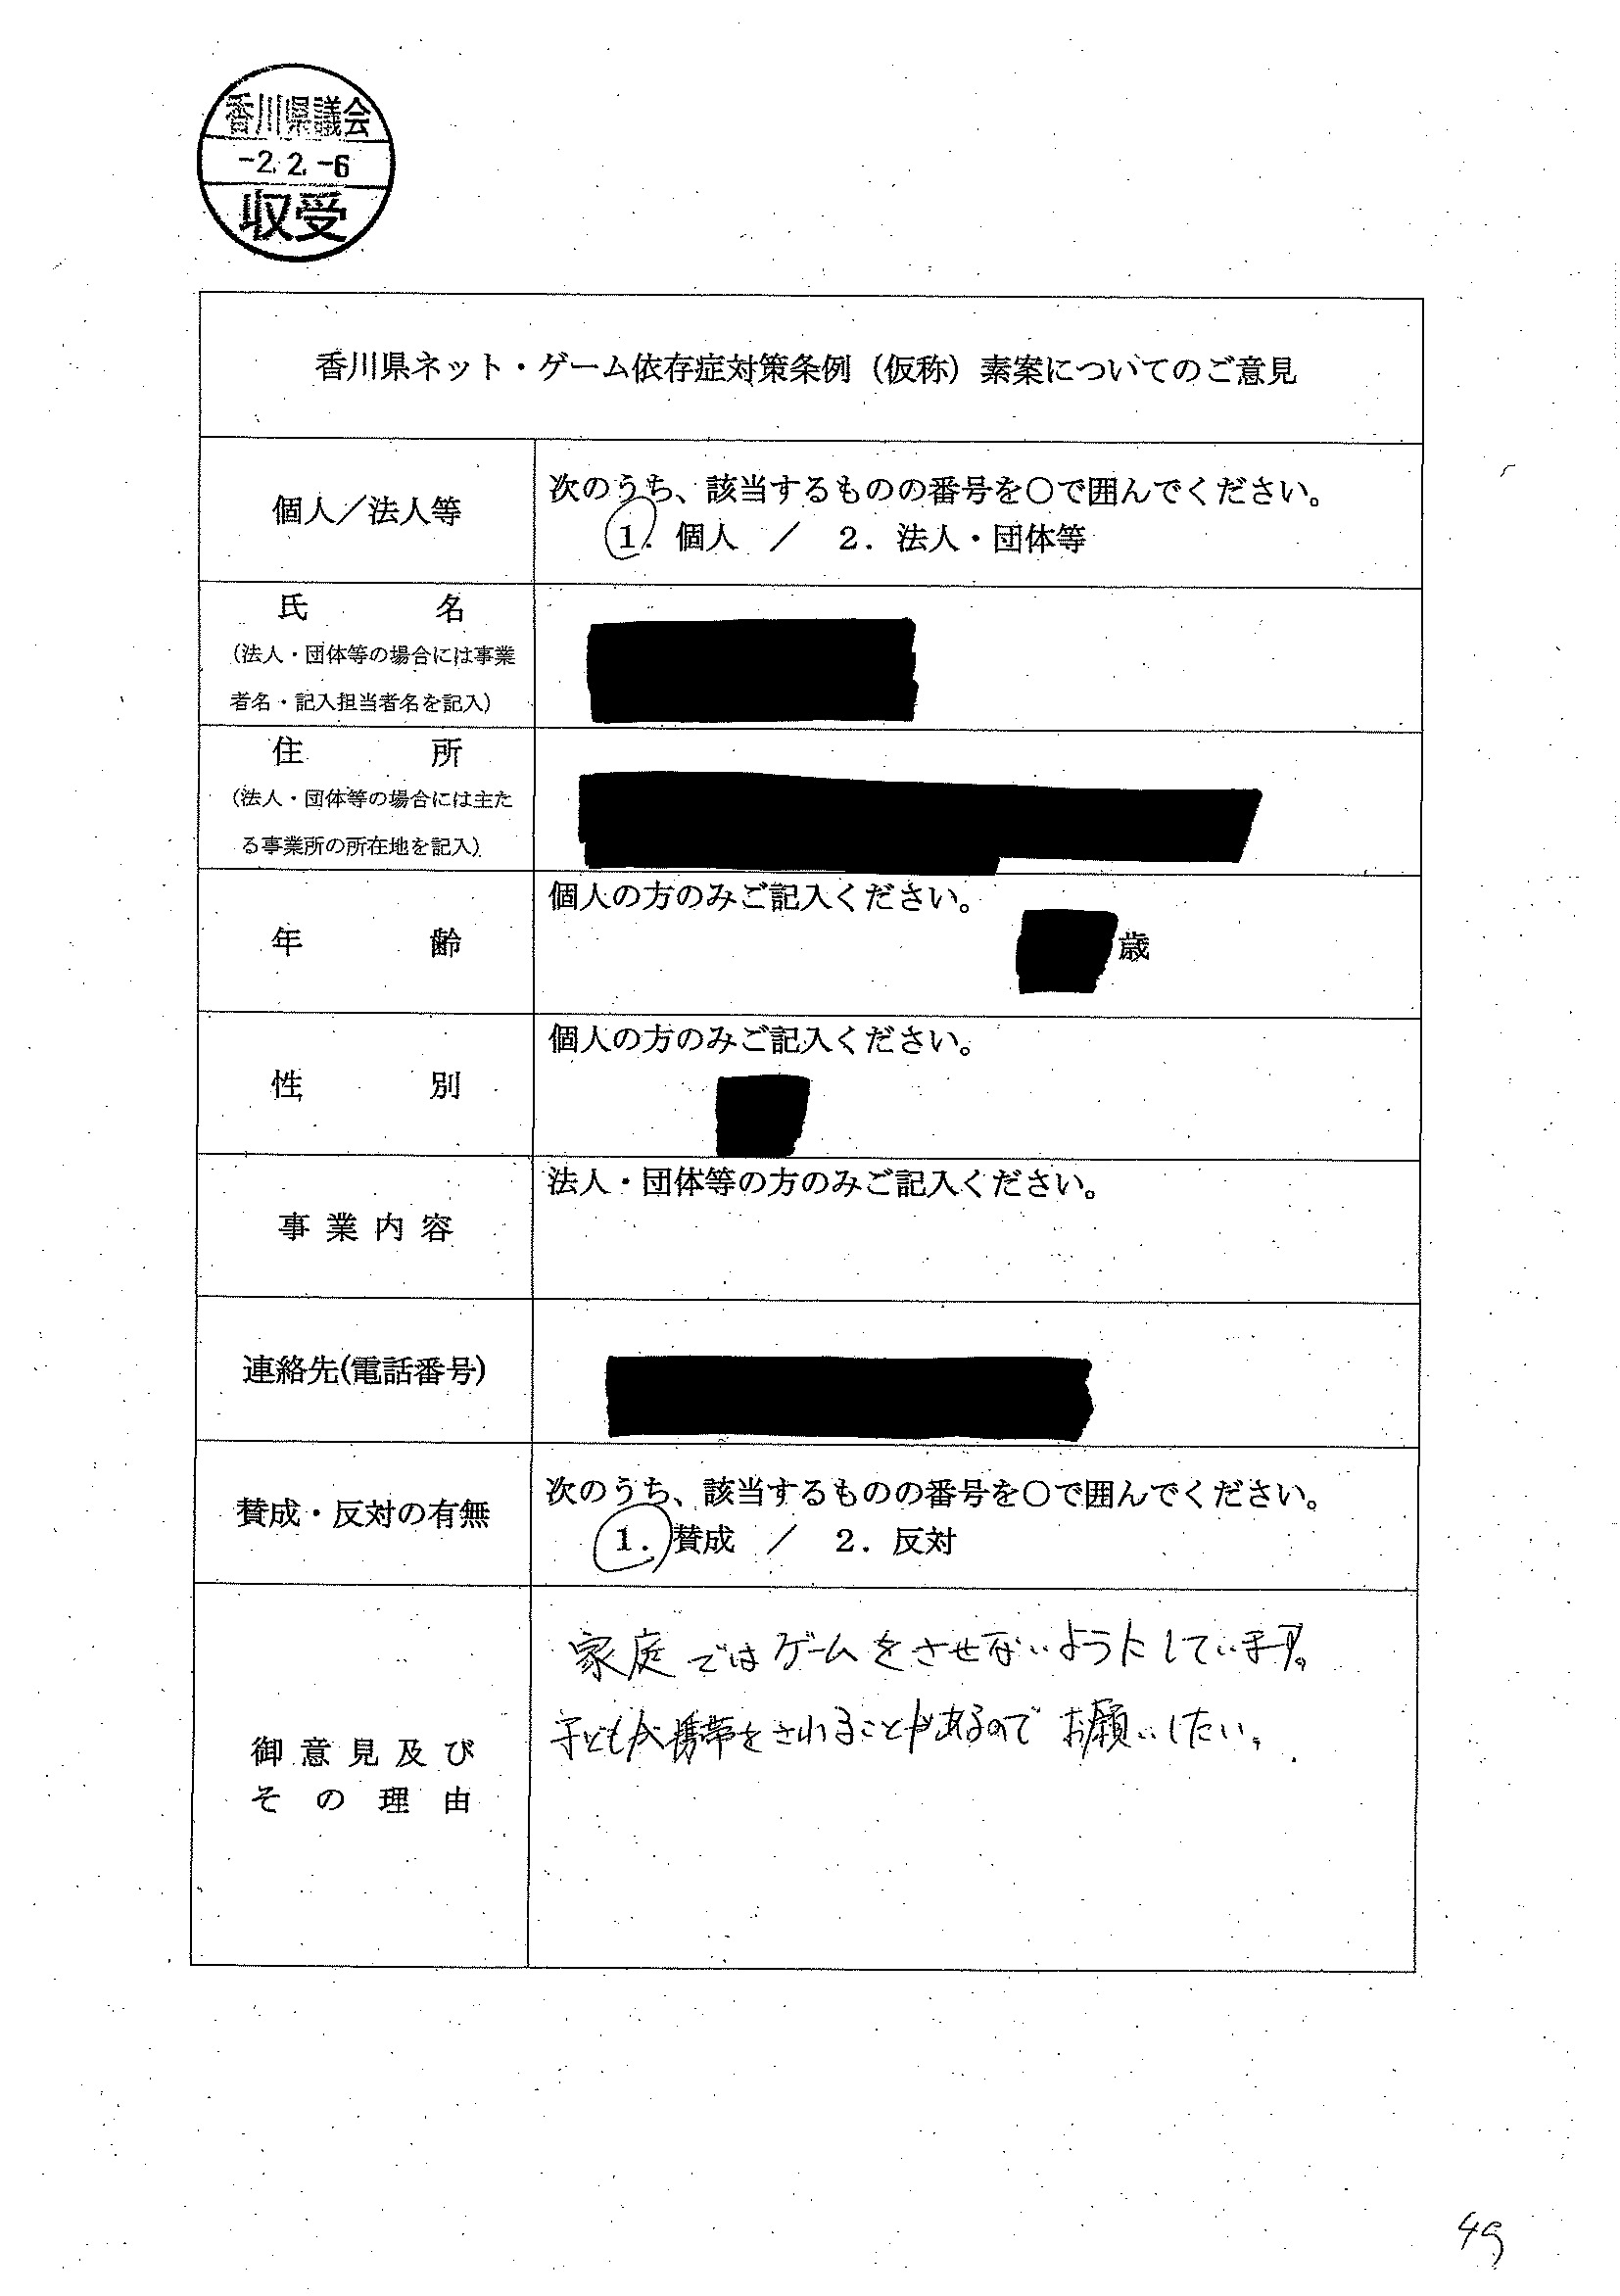 香川県議会
-2.2.-6
収受
香川県ネット・ゲーム依存症対策条例（仮称）素案についてのご意見
個人／法人等
次のうち、該当するものの番号を〇で囲んでください。
1. 個人 ／ 2. 法人・団体等
氏 名
（法人・団体等の場合には事業
者名・記入担当者名を記入）
住 所
（法人・団体等の場合には主た
る事業所の所在地を記入）
年 齢
個人の方のみご記入ください。
歳
性 別
個人の方のみご記入ください。
事業内容
法人・団体等の方のみご記入ください。
連絡先(電話番号)
賛成・反対の有無
次のうち、該当するものの番号を〇で囲んでください。
1. 賛成 ／ 2. 反対
御意見及び
その理由
家庭ではゲームをさせないようにしています。
子どもが携帯をされることがあるのでお願いしたい。
49